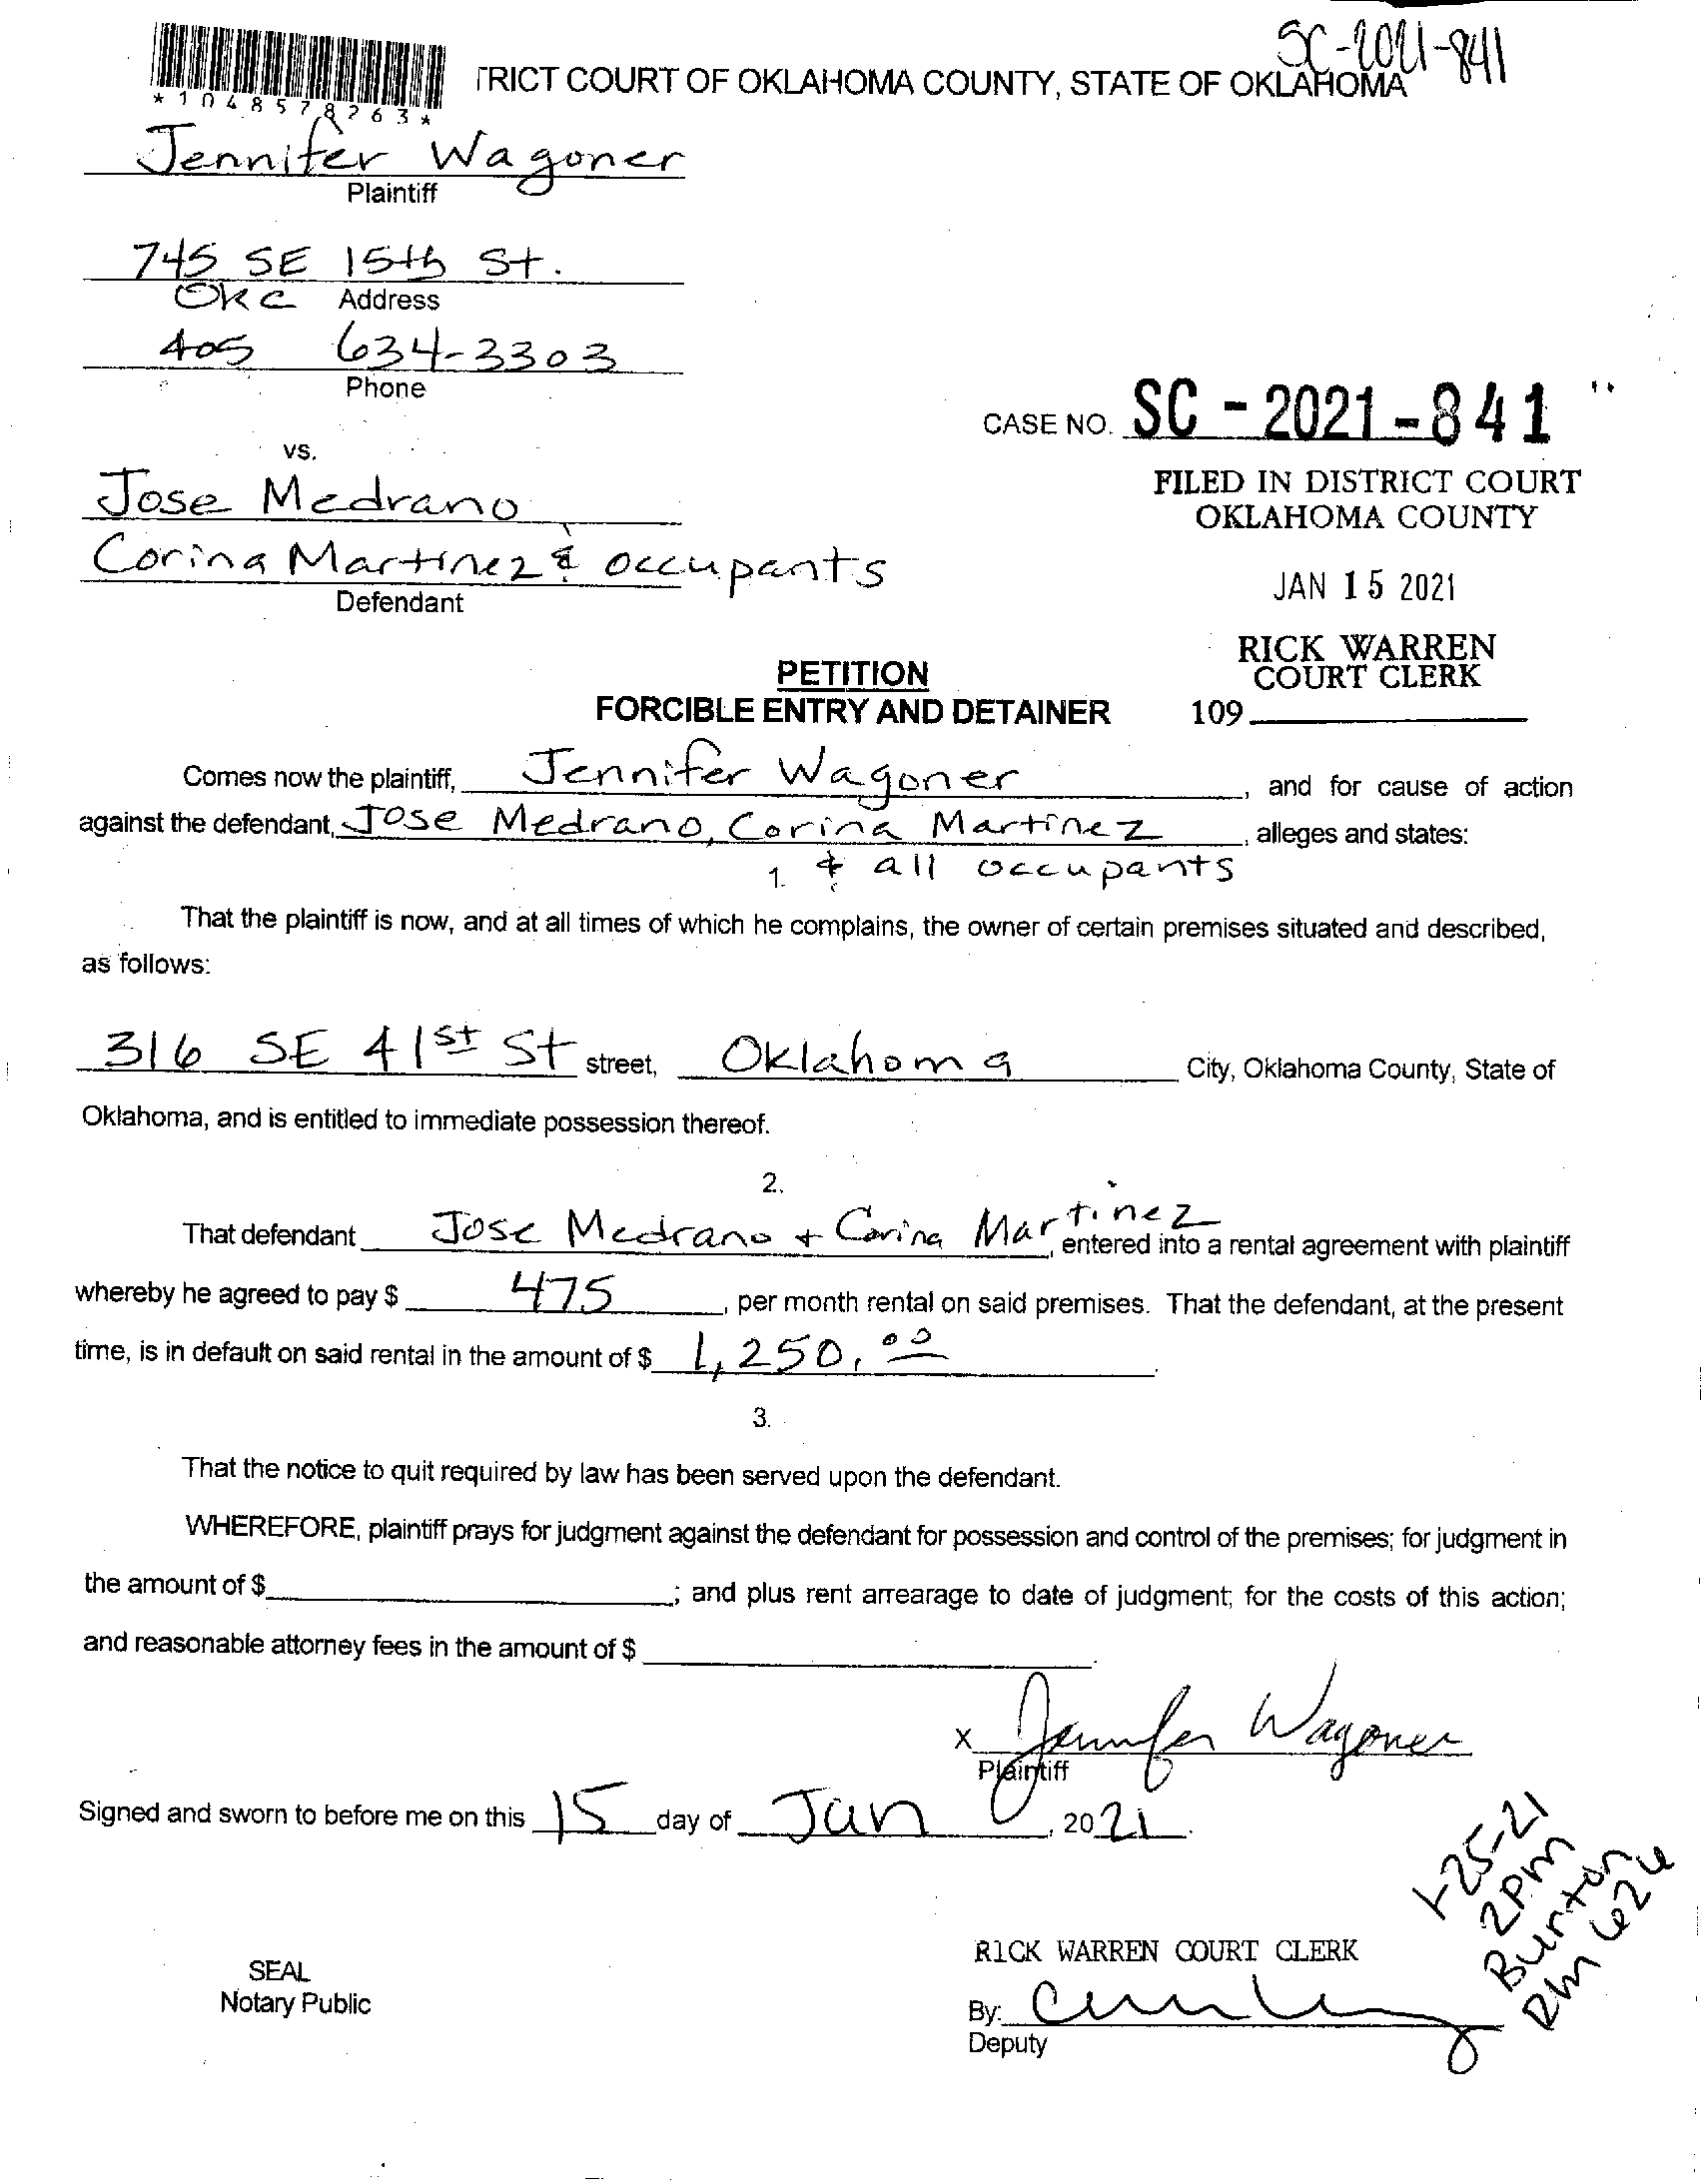 SC-2021-841
*1048578263*
TRICT COURT OF OKLAHOMA COUNTY, STATE OF OKLAHOMA
Jennifer Wagoner
Plaintiff
745 SE 15th St.
OKC Address
405 634-3303
Phone
CASE NO. SC - 2021 - 841
vs.
Jose Medrano
Corina Martinez & occupants
Defendant
FILED IN DISTRICT COURT
OKLAHOMA COUNTY
JAN 15 2021
RICK WARREN
COURT CLERK
109
PETITION
FORCIBLE ENTRY AND DETAINER
Comes now the plaintiff, Jennifer Wagoner, and for cause of action
against the defendant, Jose Medrano, Corina Martinez, alleges and states:
1. & all occupants
That the plaintiff is now, and at all times of which he complains, the owner of certain premises situated and described,
as follows:
316 SE 41st St street, Oklahoma City, Oklahoma County, State of
Oklahoma, and is entitled to immediate possession thereof.
2.
That defendant Jose Medrano + Corina Martinez, entered into a rental agreement with plaintiff
whereby he agreed to pay $ 475, per month rental on said premises. That the defendant, at the present
time, is in default on said rental in the amount of $ 1,250.00.
3.
That the notice to quit required by law has been served upon the defendant.
WHEREFORE, plaintiff prays for judgment against the defendant for possession and control of the premises; for judgment in
the amount of $ ; and plus rent arrearage to date of judgment; for the costs of this action;
and reasonable attorney fees in the amount of $ .
X Jennifer Wagoner
Plaintiff
Signed and sworn to before me on this 15 day of Jan, 2021.
1-25-21
2PM
Burton
Rm 626
RICK WARREN COURT CLERK
SEAL
Notary Public
By:
Deputy